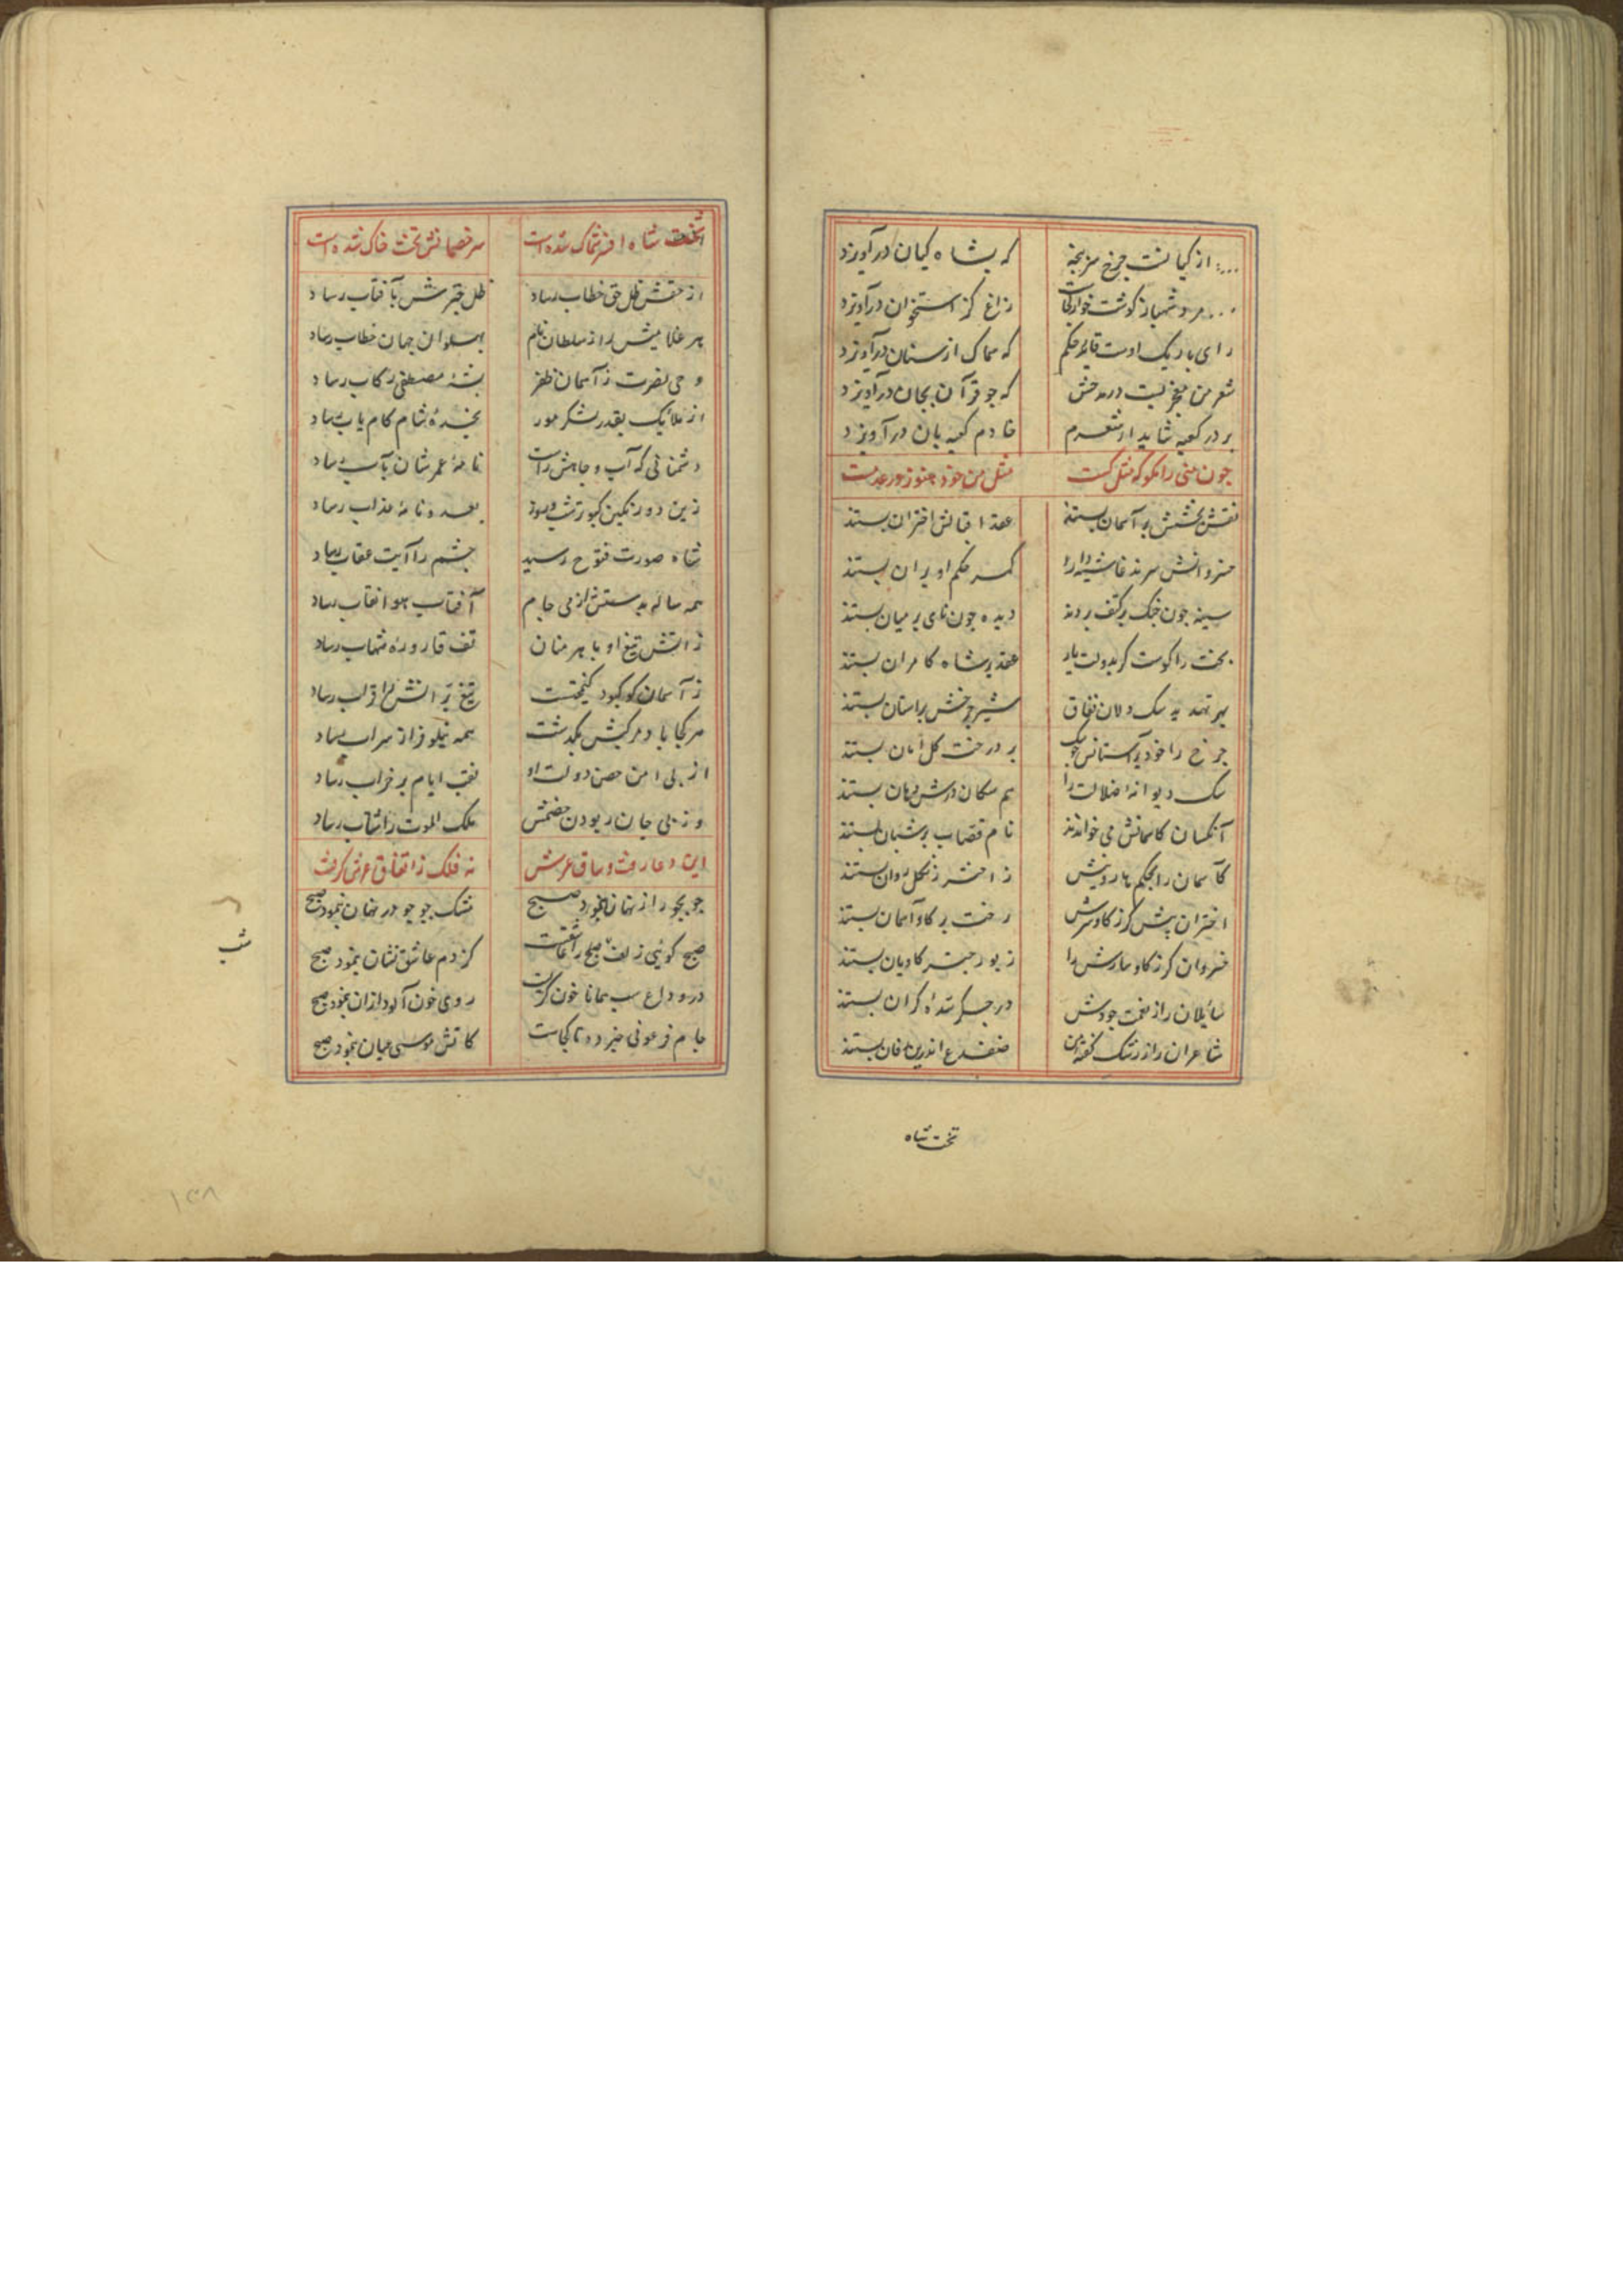 از کیانست چرخ سرپنجه که بشاه کیان درآویزد
مرد شهباز گوشت خوار کجاست زاغ کز استخوان درآویزد
رای باریک اوست قاید حکم که سماک از سنان درآویزد
شعر من معجزیست در مدحش که جو قرآن بجان درآویزد
بر در کعبه شاید ار شعرم خادم کعبه بان درآویزد
جون منی را مکو که مثل کست مثل من خود هنوز در عدمست
نقش بخشش بر آسمان بستند عقد اقبالش اختران بستند
خسروانش سزند غاشیه دار کمر حکم او بران بستند
سینه جون جنک بر کتف بردند دیده جون نای بر میان بستند
بخت را کوست کر بدولت یار عقد بر شاه کامران بستند
بهر تهدید سک دلان نفاق شیر چرخش بر آستان بستند
جرخ را خود بر آستانش جو سک بر درخت کل امان بستند
سک دیوانه ضلالت را هم سکان درش دهان بستند
آنکسان کآسمانش می خوانند نام قصاب بر شبان بستند
کآسمان را بحکم هاروتیش ز اختر زنکل روان بستند
اختران پیش کرز کاوسرش رخت بر کاو آسمان بستند
خسروان کرز کاوسارش را زیور جتر کاویان بستند
سائلان را ز نعمت جودش در جکر سده کران بستند
شاعران را ز رشک کفته من ضفدع اندر بن دهان بستند
تخت شاه
تخت شاه افسر سماک شده است سر خصمانش تخت خاک شده است
از حقش ظل حق خطاب رساد ظل جترش بآفتاب رساد
بهر غلامیش را ز سلطان نام پهلوان جهان خطاب رساد
وحی نصرت ز آسمان ظفر بشه مصطفی رکاب رساد
از ملائک بقدر لشکر مور نجده شام کام یاب رساد
دشمنانی که آب و جاهش راست نامه عمرشان بآب رساد
زین دو رنکین کبوتر شب و روز بعدو نامه عذاب رساد
شاه صورت فتوح رسید جشم را آیت عقاب رساد
همه ساله بدستش از می جام آفتاب هوا نقاب رساد
ز آتش تیغ او باهرمنان تف قاروره شهاب رساد
ز آسمان کو کبود کیمختست تیغ برانش را قراب رساد
هر کجا باد مرکبش بکدشت همه نیلوفر از سراب رساد
از پی امن حصن دولت او نقب ایام بر خراب رساد
وز پی جان ربودن خصمش ملک الموت را شتاب رساد
این دعا رفت و ساق عرش نه فلک ز اتفاق عرش کرفت
جو بجو راز نهان بنمود صبح مشک جو جو در نهان بنمود صبح
صبح کوئی زلف را عاشقست کز دم عاشق نشان بنمود صبح
در وداع شب همانا خون کریست روی خون آلود ازان بنمود صبح
جام فرعونی خبر ده تا کجاست کآتش موسی عیان بنمود صبح
شب